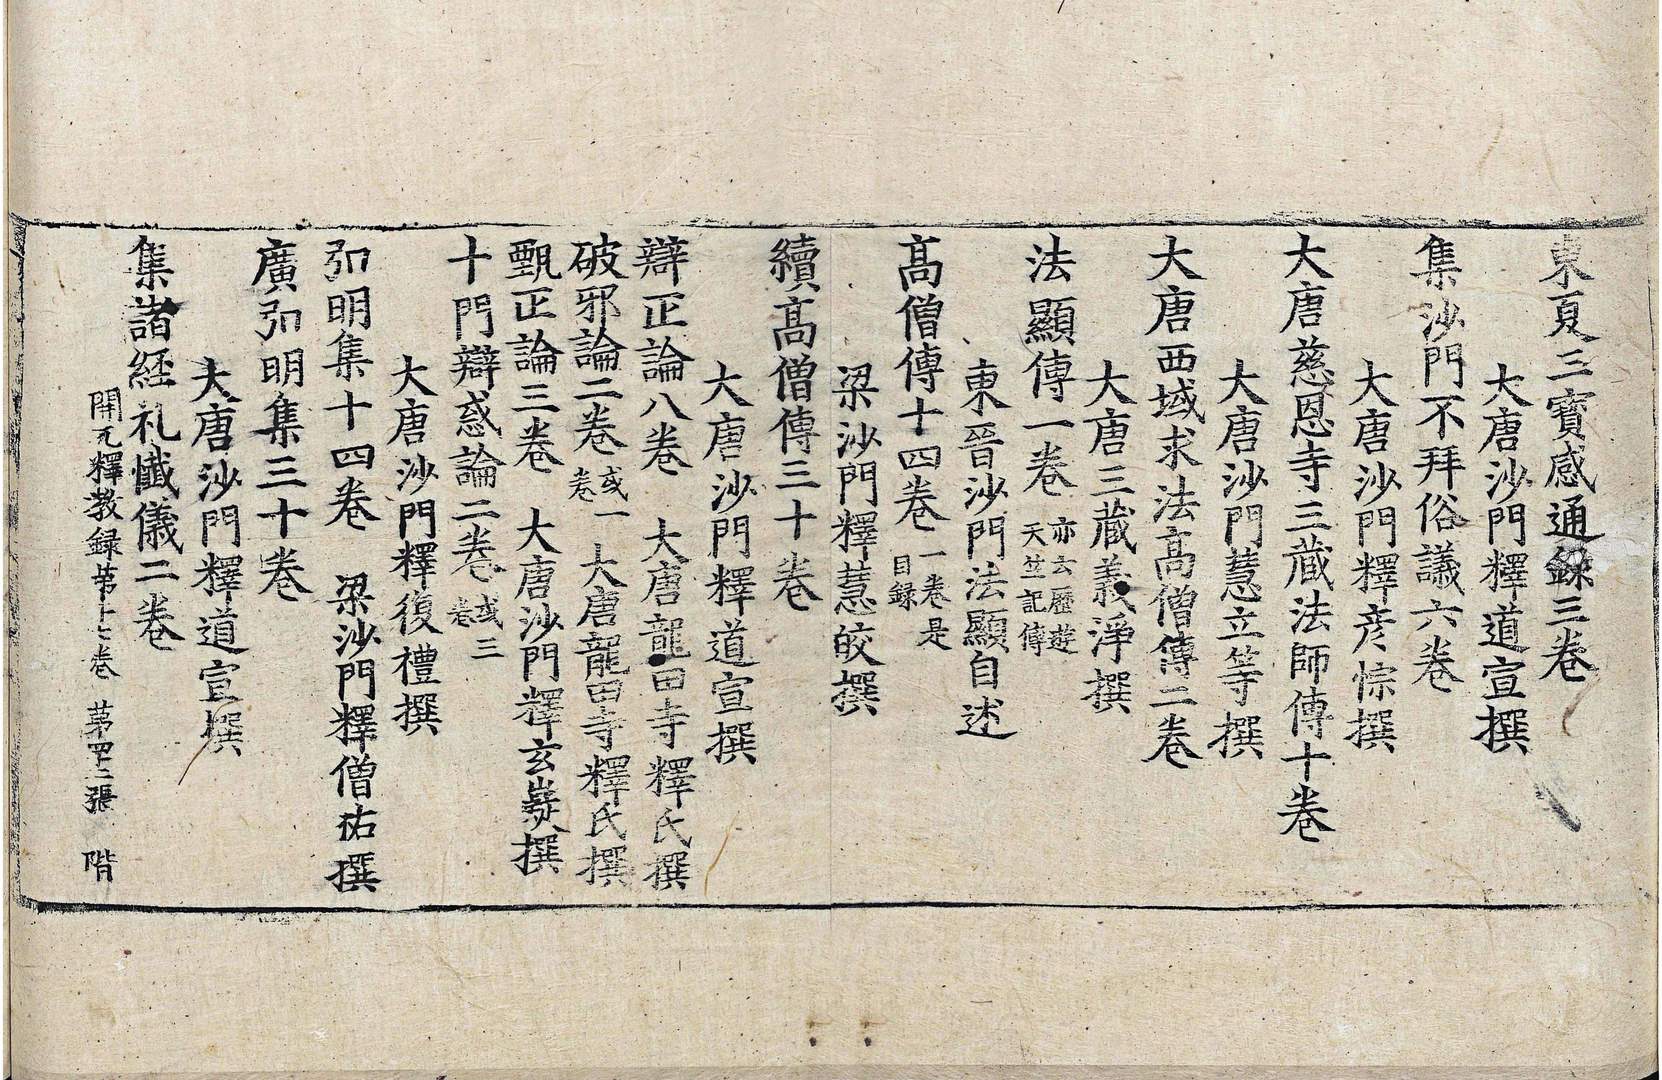 東夏三寶感通録三卷
大唐沙門釋道宣撰
集沙門不拜俗議六卷
大唐沙門釋彦悰撰
大唐慈恩寺三藏法師傳十卷
大唐沙門慧立等撰
大唐西域求法高僧傳二卷
大唐三藏義淨撰
法顯傳一卷 亦云歷遊天竺記傳
東晉沙門法顯自述
高僧傳十四卷 一卷是目録
梁沙門釋慧皎撰
續高僧傳三十卷
大唐沙門釋道宣撰
辯正論八卷 大唐龍田寺釋氏撰
破邪論二卷 或一卷 大唐龍田寺釋氏撰
甄正論三卷 大唐沙門釋玄嶷撰
十門辯惑論二卷 或三卷
大唐沙門釋復禮撰
弘明集十四卷 梁沙門釋僧祐撰
廣弘明集三十卷
大唐沙門釋道宣撰
集諸經礼懺儀二卷
開元釋教録苐十七卷 苐四二張 階